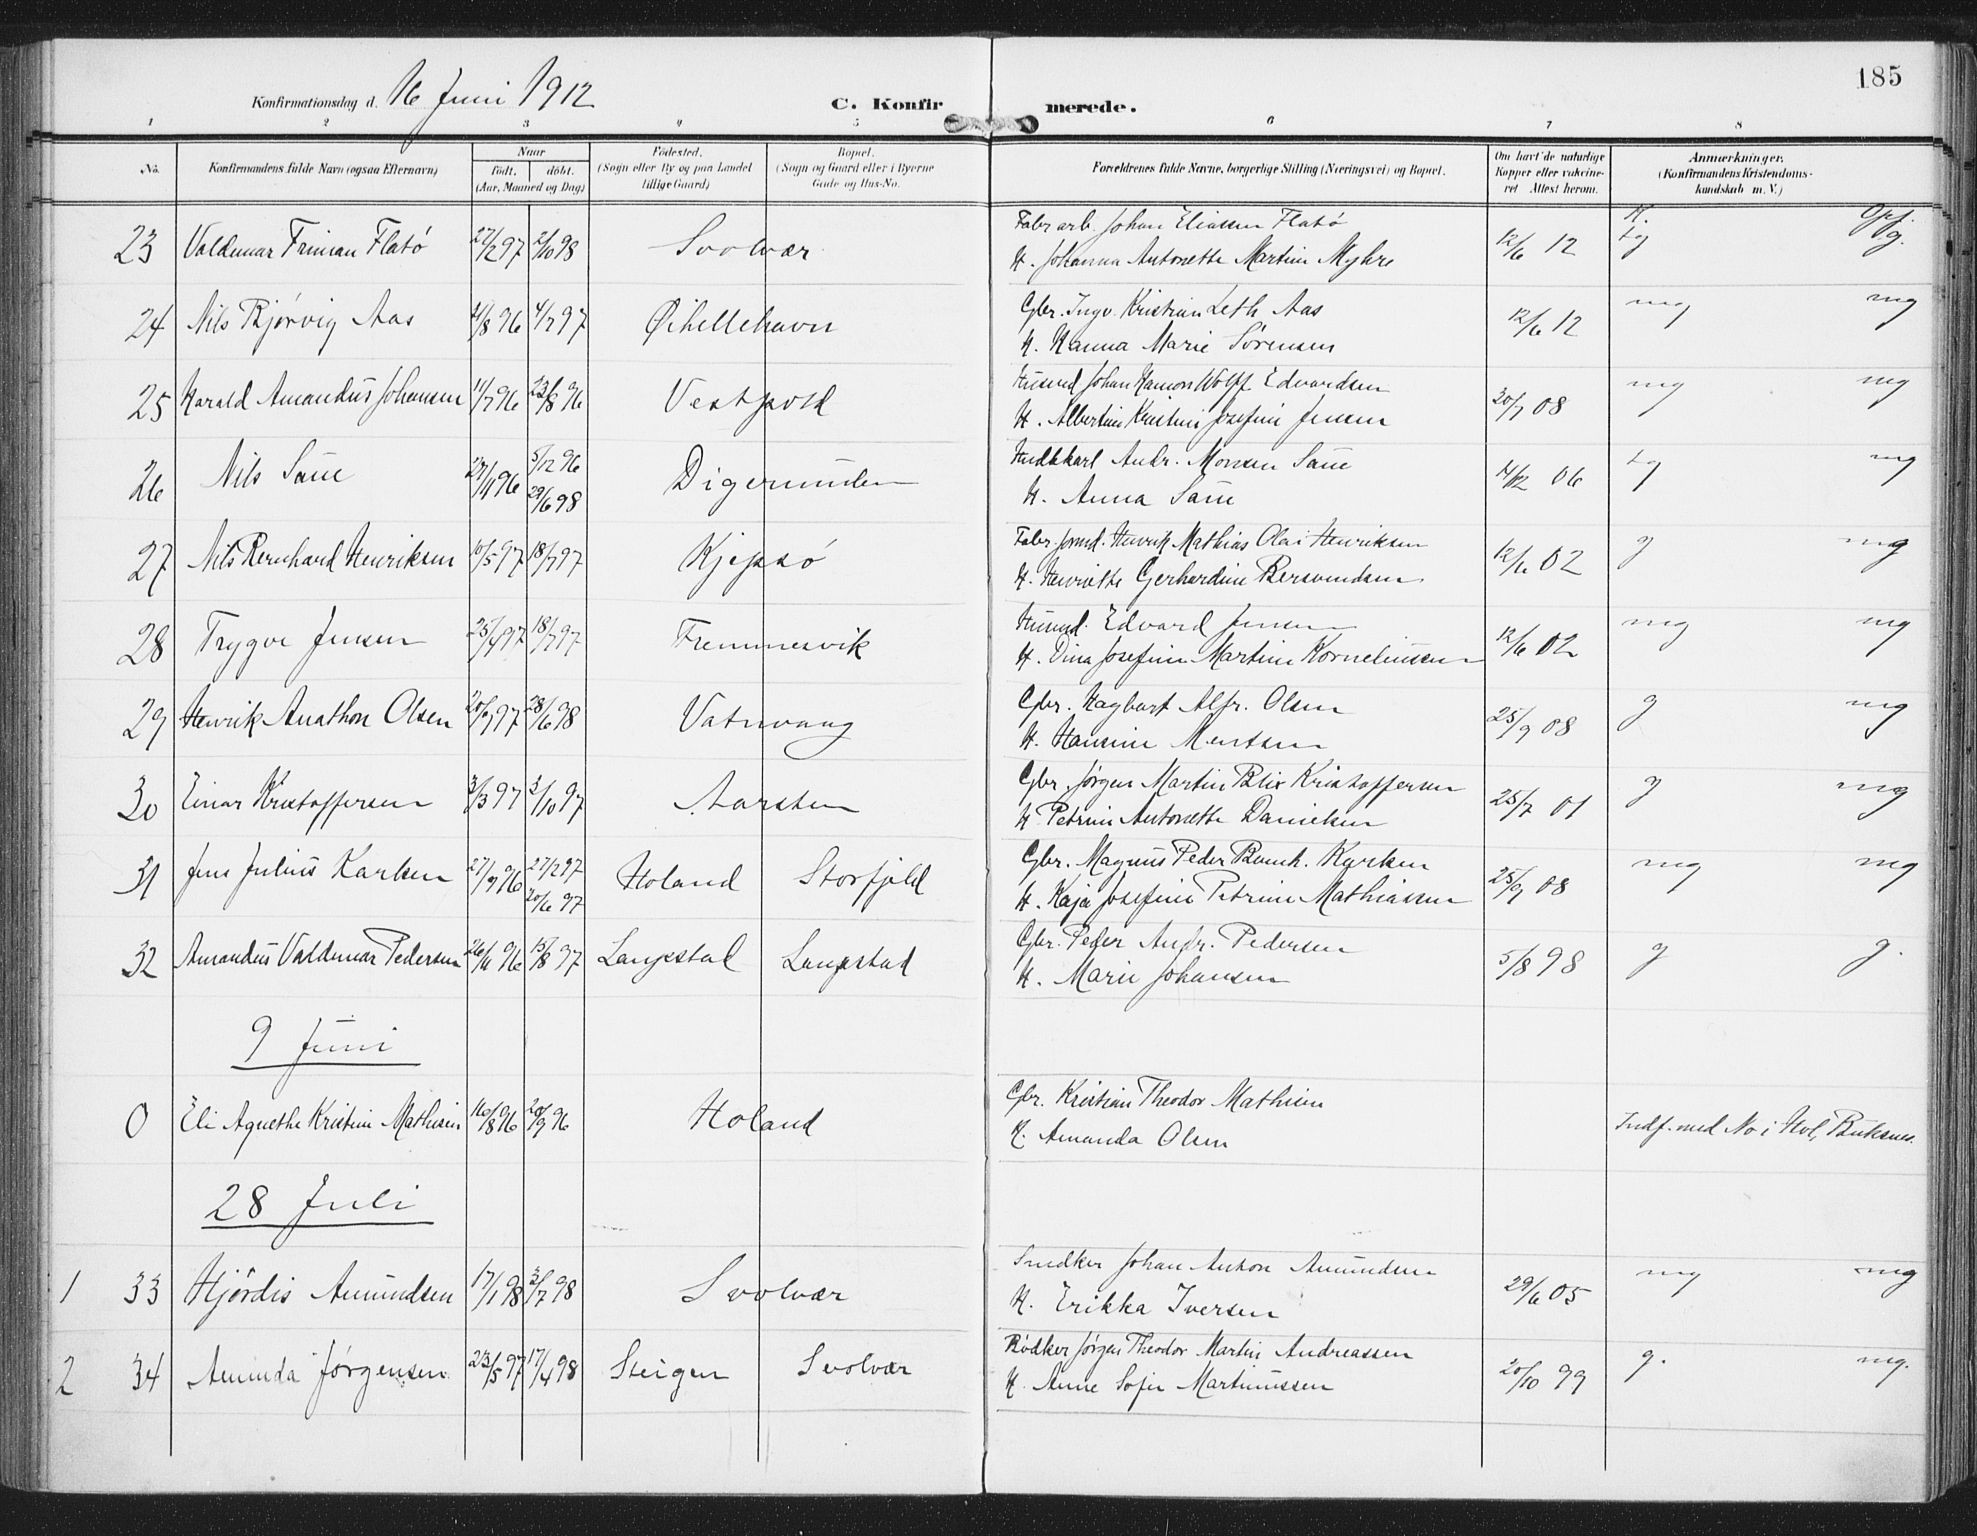 185
Konfirmationsdag d. 16 Juni 1912 C. Konfirmerede.
1 2 3 4 5 6 7 8
No. Konfirmandens fulde Navn (ogsaa Efternavn) Naar født. døbt. (Aar, Maaned og Dag) Fødested. (Sogn eller By og paa Landet tillige Gaard) Bopæl. (Sogn og Gaard eller i Byerne Gade og Hus-No. Forældrenes fulde Navne, borgerlige Stilling (Næringsvei) og Bopæl. Om havt de naturlige Kopper eller vakcineret Attest herom. Anmærkninger. (Konfirmandens Kristendomskundskab m. V.)
K. Opf.
23 Valdemar Friman Flatø 27/2 97 2/10 98 Svolvær Fabr.arb. Johan Eliassen Flatø 12/6 12 tg g.
H. Johanna Antonette Martine Myhre
24 Nils Bjørvig Aas 4/7 97 Øihellehavn Gbr. Ingv. Kristian Leth Aas 12/6 12 mg mg
H. Hanna Marie Sørensen
25 Harald Amandus Johansen 11/7 96 23/8 96 Vestpold Husmd Johan Hamon Wolff Edvardsen 20/7 08 mg mg
H. Albertine Kristine Josefine Jensen
26 Nils Saue 5/12 96 29/6 98 Digermulen Hndlkarl Andr. Monsen Saue 4/12 06 tg mg
H. Anna Saue
27 Nils Bernhard Henriksen 10/5 97 18/7 97 Kjepsø Fabr.formd. Henrik Mathias Olai Henriksen 12/6 02 g mg
H. Henriette Gerhardine Bersvendsen
28 Trygve Jensen 25/4 97 18/7 97 Fremmesvik Husmd. Edvard Jensen 12/6 02 mg mg
H. Dina Josefine Martine Korneliussen
29 Henrik Anathon Olsen 28/6 98 Vatnvaag Gbr. Hagbart Alfr. Olsen 25/9 08 g mg
H. Hansine Mentsen
30 Einar Kristoffersen 3/3 97 3/10 97 Aarsten Gbr. Jørgen Martin Blix Kristoffersen 25/7 01 g mg
H Petrine Antonette Danielsen
31 Jens Julius Karlsen 27/9 96 27/2 97 20/6 97 Holand Storfjeld Gbr. Magnus Peder Karlsen 25/9 08 mg mg
H. Kaja Josefine Petrine Mathiassen
32 Amandus Valdemar Pedersen 26/11 96 15/8 97 Langstad Langstad Gbr. Peder Andr. Pedersen 5/8 98 g g.
H. Marie Johansen
9 Juni
0 Eli Agnethe Kristine Mathisen 16/8 96 20/9 96 Holand Gbr. Kristian Theodor Mathisen Indf. med No i Hol, Buksnes.
H. Amanda Olsen
28 Juli
1 33 Hjørdis Amundsen 17/1 98 3/7 98 Svolvær Snedker Johan Anton Amundsen 29/6 05 mg mg
H. Erikka Iversen
2 34 Aminda Jørgensen 23/5 97 17/4 98 Steigen Svolvær Bødker Jørgen Theodor Martin Andreassen 20/10 99 g. mg.
H. Anne Sofie Martinussen